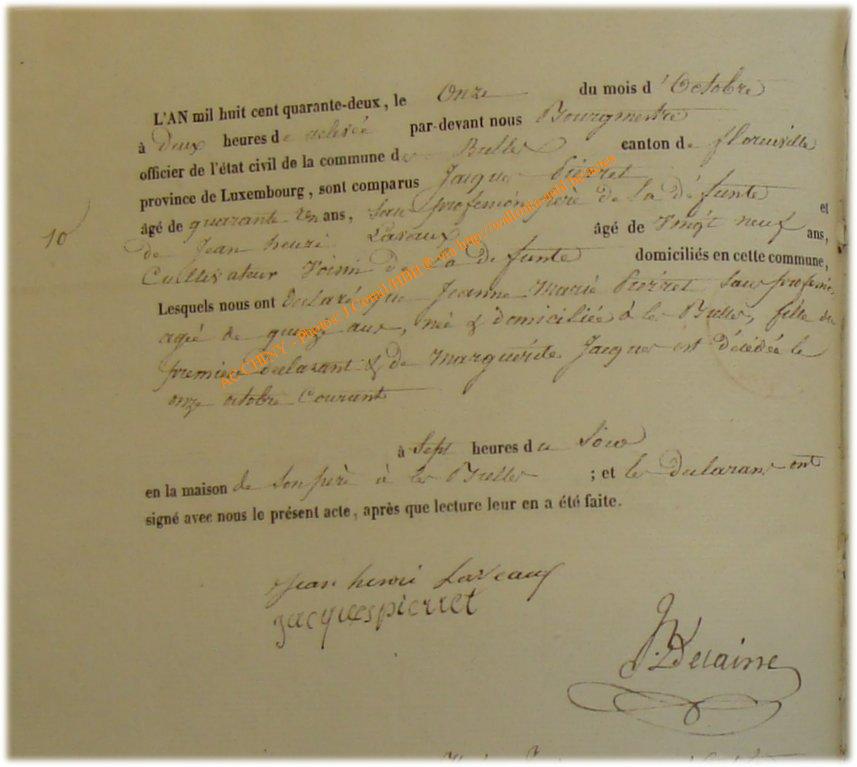 L'AN mil huit cent quarante-deux, le Onze du mois d'Octobre
à deux heures de relevée par-devant nous Bourgmestre
officier de l'état civil de la commune de Bulles canton de florenville
province de Luxembourg, sont comparus Jacques Pierret
âgé de quarante ans, sans profession père de la défunte et
10
de Jean henri Lavaux âgé de Vingt neuf ans,
Cultivateur Voisin de la defunte domiciliés en cette commune,
Lesquels nous ont declaré que Jeanne Marie Pierret sans profession
agée de quinze ans, née & domiciliée à les Bulles, fille du
premier declarant & de Marguérite Jacques est décédée le
onze octobre Courant
à Sept heures du Soir
en la maison de son père à les Bulles ; et les declarans ont
signé avec nous le présent acte, après que lecture leur en a été faite.
Jean henri Laveaux
jacquespierret